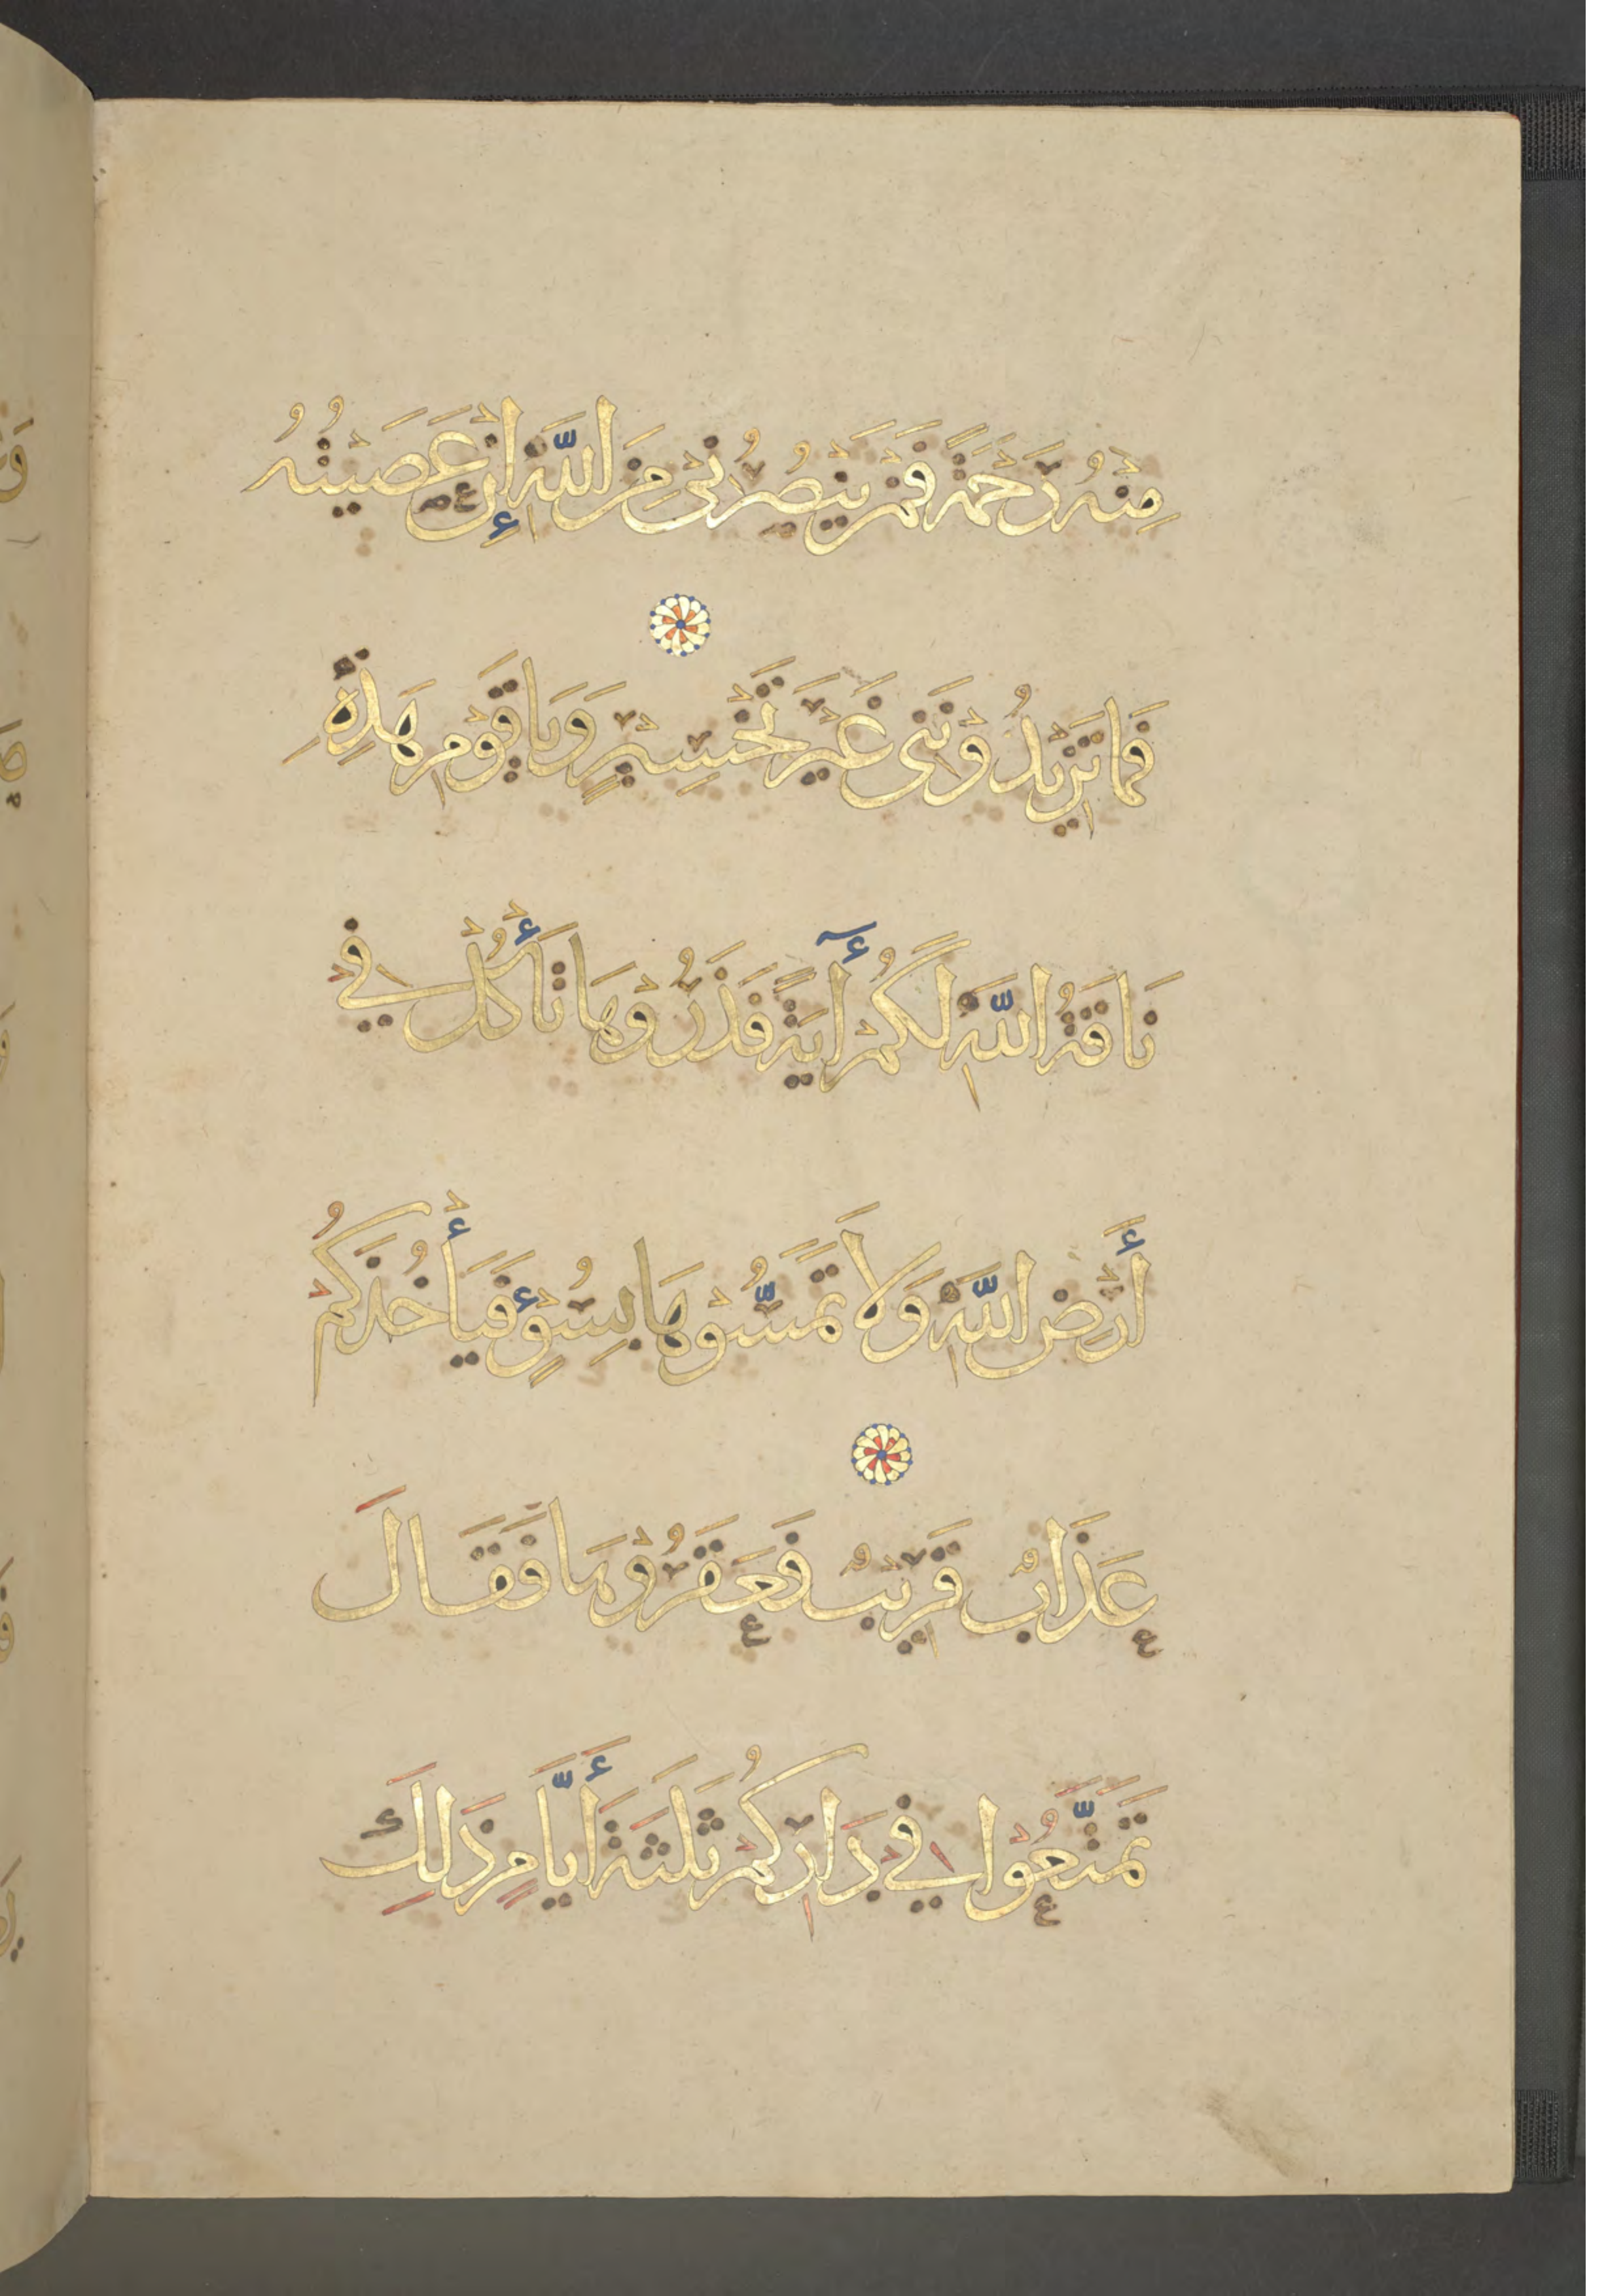 مِنْهُ رَحْمَةً فَمَنْ يَنْصُرُنِي مِنَ اللَّهِ إِنْ عَصَيْتُهُ
فَمَا تَزِيدُوْنَنِي غَيْرَ تَخْسِيرٍ وَيَا قَوْمِ هَذِهِ
نَاقَةُ اللَّهِ لَكُمْ أٓيَةً فَذَرُوْهَا تَأْكُلْ فِي
أَرْضِ اللَّهِ وَلَا تَمَسُّوْهَا بِسُوْءٍ فَيَأْخُذَكُمْ
عَذَابٌ قَرِيبٌ فَعَقَرُوْهَا فَقَالَ
تَمَتَّعُوْا فِي دَارِكُمْ ثَلَثَةَ أَيَّامٍ ذَلِكَ